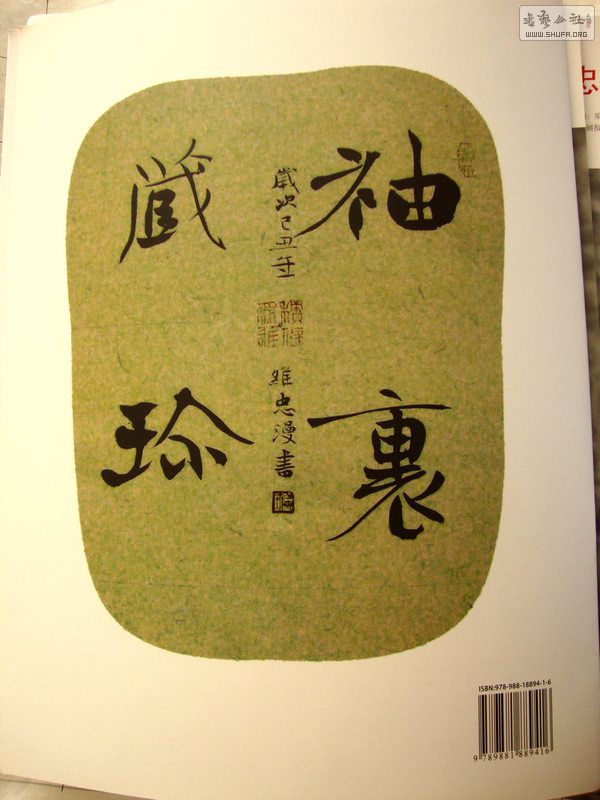 袖裏
歲次己丑年
維忠漫書
藏珍
ISBN:978-988-18894-1-6
9 789881 889416
書藝公社
WWW.SHUFA.ORG
忠